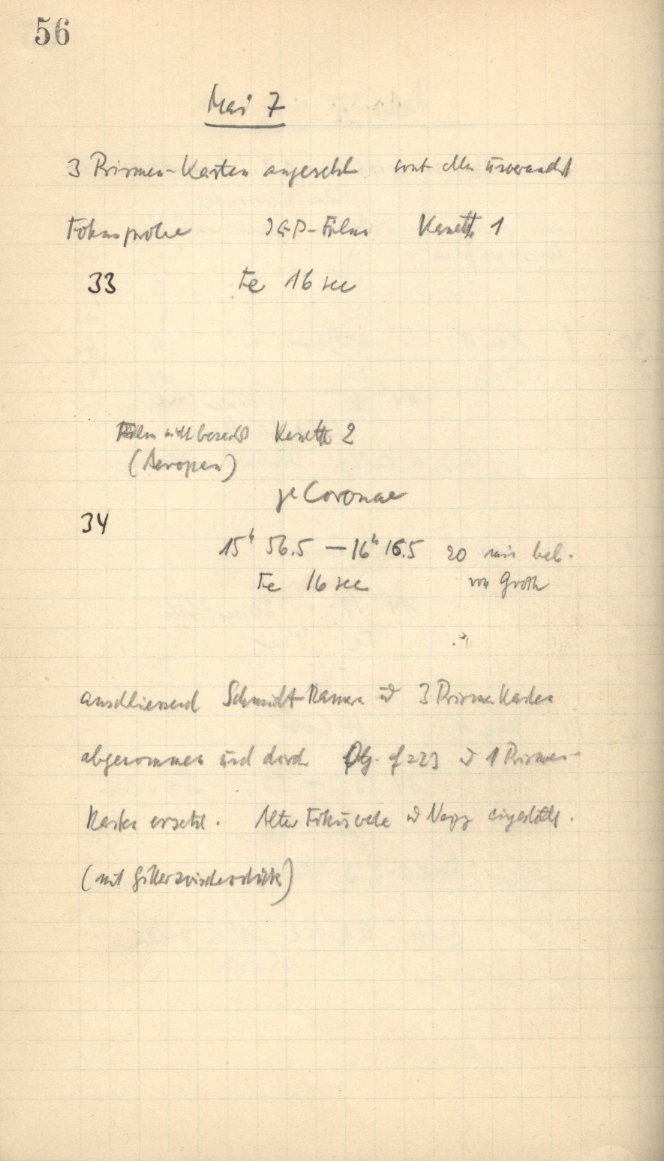 56
Mai 7
3 Prismen-Kasten angesetzt sonst alles unverändert
Fokusprobe Film Kassette 1
33 Fe 16 sec
Film nicht Kassette 2
(Aeropan)
γ Coronae
34
15h 56.5 — 16h 16.5 20 min bel.
Fe 16 sec von Groth
anschliessend Schmidt-Kamera 3 Prismen Kasten
abgenommen und durch Obj. f=23 1 Prismen-
Kasten ersetzt. Alter Fokus
(mit Gitterzwischenstück)